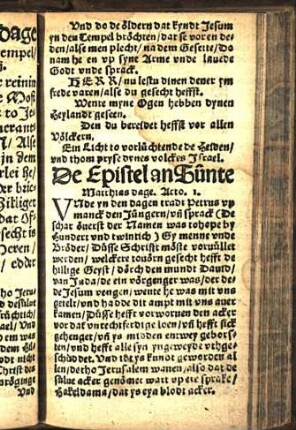 dage
Und do de öldern dat kyndt Jesum
yn den Tempel bröchten/ dat se vor en de-
den/ alse men plecht/ na dem Gesette/ Do
nam he en up syne Arme unde lauede
Godt unde sprack.
HERR/ nu lestu dinen dener ym
frede varen/ alse du gesecht heffst.
Wente myne Ogen hebben dynen
Heylandt geseen.
Den du bereidet heffst vor allen
Völckern.
Ein Licht to vorlüchtende de Heiden/
und thom pryse dynes volckes Israel.
De Epistel an Sünte
Matthias dage. Acto. 1.
UNde yn den dagen tradt Petrus up
manck den Jüngern/ uñ sprack (De
schar öuerst der Namen was tohope by
Hundert und twintich) Gy menne unde
Bröder/ Düsse Schrifft möste voruüllet
werden/ welckere touörn gesecht hefft de
hillige Geyst/ dörch den mundt Dauid/
van Juda/ de ein vörgenger was/ der de
de Jesum vengen/ wente he was mit uns
getelt/ und hadde dit ampt mit uns auer-
kamen/ Düsse hefft vorworuen den acker
vor dat unrechtferdige loen/ uñ hefft sick
gehenger/ uñ ys midden entwey gebors-
ten/ und hefft alle syn yngeweyde uthge-
schüddet. Und idt ys kundt geworden al
len/ de tho Jerusalem wanen/ also dat de
sülue acker genömet wart up ere sprake/
Hakeldama/ dat ys eyn blodt acker.
Und